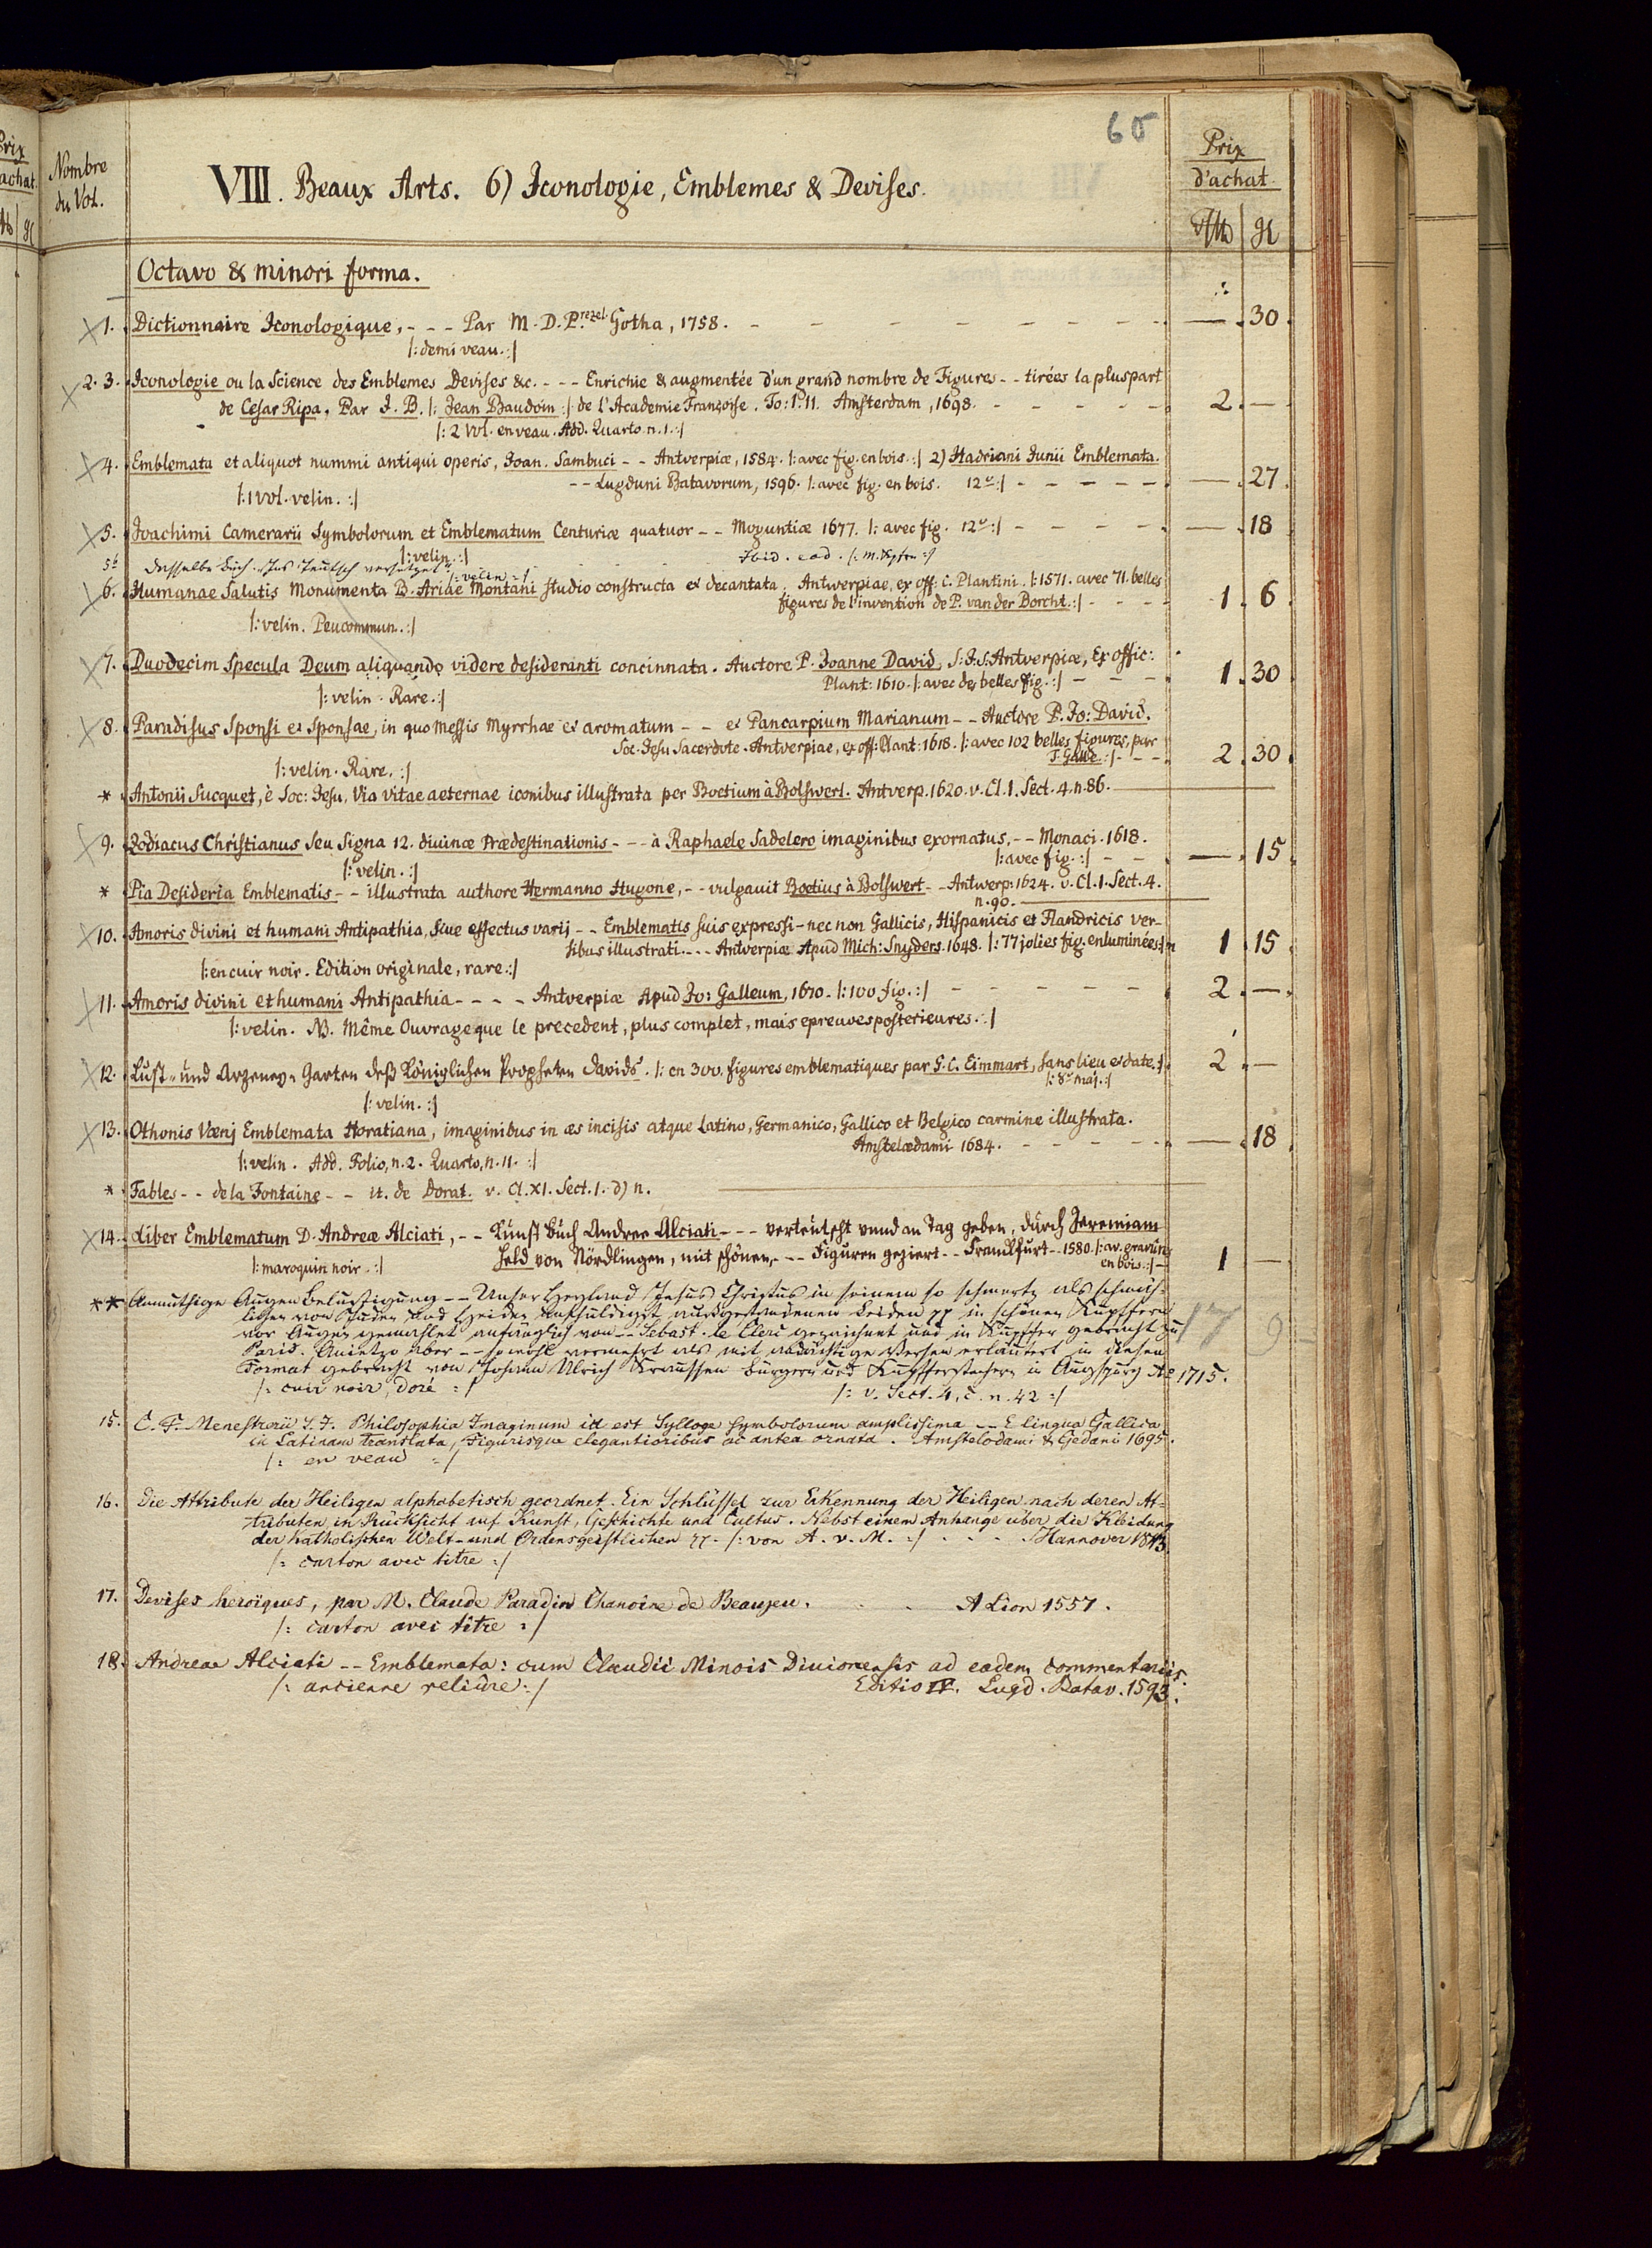 65
Prix
achat.
Nombre
du Vol.
VIII. Beaux Arts. 6) Iconologie, Emblemes & Devises.
Prix
d'achat
Octavo & minori forma.
1. Dictionnaire Iconologique, - - - Par M. D. P.rezel Gotha, 1758. — . 30.
|: demi veau. :|
2. 3. Iconologie ou la Science des Emblemes Devises &c. - - - Enrichie & augmentée d'un grand nombre de Figures - - tirées la pluspart
de Cesar Ripa. Par J. B. |: Jean Baudoin :| de l'Academie Françoise. To: I. II. Amsterdam, 1698. 2. —.
|: 2 Vol. en veau. Add. Quarto. n. 1. :|
4. Emblemata et aliquot nummi antiqui operis, Joan. Sambuci - - Antverpiæ, 1584. |: avec fig. en bois. :| 2) Hadriani Junii Emblemata.
- - Lugduni Batavorum, 1596. |: avec fig. en bois. 12º :| — . 27.
|: 1 Vol. velin. :|
5. Joachimi Camerarii Symbolorum et Emblematum Centuriæ quatuor - - Moguntiæ 1677. |: avec fig. 12º :| — . 18
|: velin. :|
5b Dasselbe Buch. Ins Teutsch versetzet. Ibid. eod. |: m. Kpfrn :|
|: velin :|
6. Humanae Salutis Monumenta B. Ariae Montani studio constructa et decantata. Antverpiae, ex off: C. Plantini. |: 1571. avec 71. belles
figures de l'invention de P. van der Borcht. :| 1. 6.
|: velin. Peu commun. :|
7. Duodecim Specula Deum aliquando videre desideranti concinnata. Auctore P. Joanne David, S: J. S: Antverpiæ, Ex offic:
Plant: 1610. |: avec des belles fig. :| 1. 30
|: velin. Rare. :|
8. Paradisus Sponsi et Sponsae, in quo Messis Myrrhae et aromatum - - et Pancarpium Marianum - - Auctore P. Jo: David.
Soc. Jesu Sacerdote. Antverpiae, ex off: Plant: 1618. |: avec 102 belles figures, par
T. Galle. :| 2. 30.
|: velin. Rare. :|
* Antonii Sucquet, è Soc: Jesu, Via vitae aeternae iconibus illustrata per Boetium à Bolswert. Antverp. 1620. v. Cl. I. Sect. 4. n. 86.
9. Zodiacus Christianus seu Signa 12. divinæ Prædestinationis - - - à Raphaele Sadelero imaginibus exornatus, - - Monaci. 1618.
|: avec fig. :| — . 15.
|: velin. :|
* Pia Desideria Emblematis - - illustrata authore Hermanno Hugone, - - vulgavit Boetius à Bolswert - - Antverp: 1624. v. Cl. I. Sect. 4.
n. 90.
10. Amoris divini et humani Antipathia, sive effectus varij - - Emblematis suis expressi - nec non Gallicis, Hispanicis et Flandricis ver-
sibus illustrati. - - - Antverpiæ Apud Mich: Snyders. 1648. |: 77 jolies fig. enluminées :| 1. 15
|: en cuir noir. Edition originale, rare. :|
11. Amoris divini et humani Antipathia - - - - Antverpiæ Apud Jo: Galleum, 1670. |: 100 fig. :| 2. —.
|: velin. NB. Même Ouvrage que le precedent, plus complet, mais epreuves posterieures. :|
12. Lust- und Arzeney-Garten deß Königlichen Propheten Davids. |: en 300. figures emblematiques par G. C. Eimmart, sans lieu et date. :| 2. —
|: 8º maj. :|
|: velin. :|
13. Othonis Vænj Emblemata Horatiana, imaginibus in æs incisis atque Latino, Germanico, Gallico et Belgico carmine illustrata.
Amstelædami 1684. — . 18.
|: velin. Add. Folio, n. 2. Quarto, n. 11. :|
* Fables - - de la Fontaine - - it. de Dorat. v. Cl. XI. Sect. 1. d) n.
14. Liber Emblematum D. Andreæ Alciati, - - Kunst Buch Andree Alciati - - - verteütscht vnnd an Tag geben, durch Jeremiam
Held von Nördlingen, mit schönen, - - - Figuren geziert - - Franckfurt - - 1580. |: av. gravures
en bois. :| 1 —
|: maroquin noir. :|
** Anmuthige Augen Belustigung - - Unser Heyland Jesus Christus in seinem so schmertz als schmäh-
lichen von Juden und Heiden unschuldigst ausgestandenen Leiden in schönen Kupffern
vor Augen gemahlet anfänglich von - - Sebast. le Clerc gezeichnet und in Kupffer gebracht zu
Paris. Anietzo aber - - sowohl vermehrt als mit andächtige Versen erläutert in diesen
Format gebracht von Johann Ulrich Kraussen Burgern und Kupfferstechern in Augspurg Ao 1715.
|: cuir noir, doré :| |: v. Sect. 4, c. n. 42 :|
15. C. F. Menestrerii S. J. Philosophia Imaginum id est Sylloge symbolorum amplissima - - E lingua Gallica
in Latinam translata, Figurisque elegantioribus ac antea ornata. Amstelodami & Gedani 1695.
|: en veau :|
16. Die Attribute der Heiligen alphabetisch geordnet. Ein Schlüssel zur Erkennung der Heiligen nach deren At-
tributen, in Rücksicht auf Kunst, Geschichte und Cultus. Nebst einem Anhange über die Kleidung
der Katholischen Welt- und Ordensgeistlichen |: von A. v. M. :| Hannover 1843.
|: carton avec titre :|
17. Devises heroïques, par M. Claude Paradin Chanoine de Beaujeu. A Lion 1557.
|: carton avec titre :|
18. Andreae Alciati - - Emblemata: cum Claudii Minois Divionensis ad eadem commentariis.
|: ancienne reliûre :| Editio IV. Lugd. Batav. 1593.